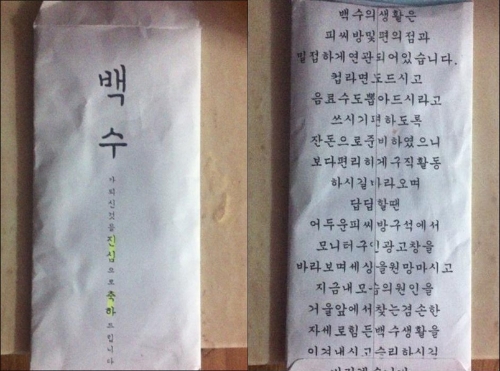 백
수
가 되신것을
진심으로
축하드립니다
백수의생활은
피씨방및편의점과
밀접하게연관되어있습니다.
컵라면도드시고
음료수도뽑아드시라고
쓰시기편하도록
잔돈으로준비하였으니
보다편리하게구직활동
하시길바라오며
답답할땐
어두운피씨방구석에서
모니터구인광고창을
바라보며세상을원망마시고
지금내모습의원인을
거울앞에서찾는겸손한
자세로힘든백수생활을
이겨내시고승리하시길